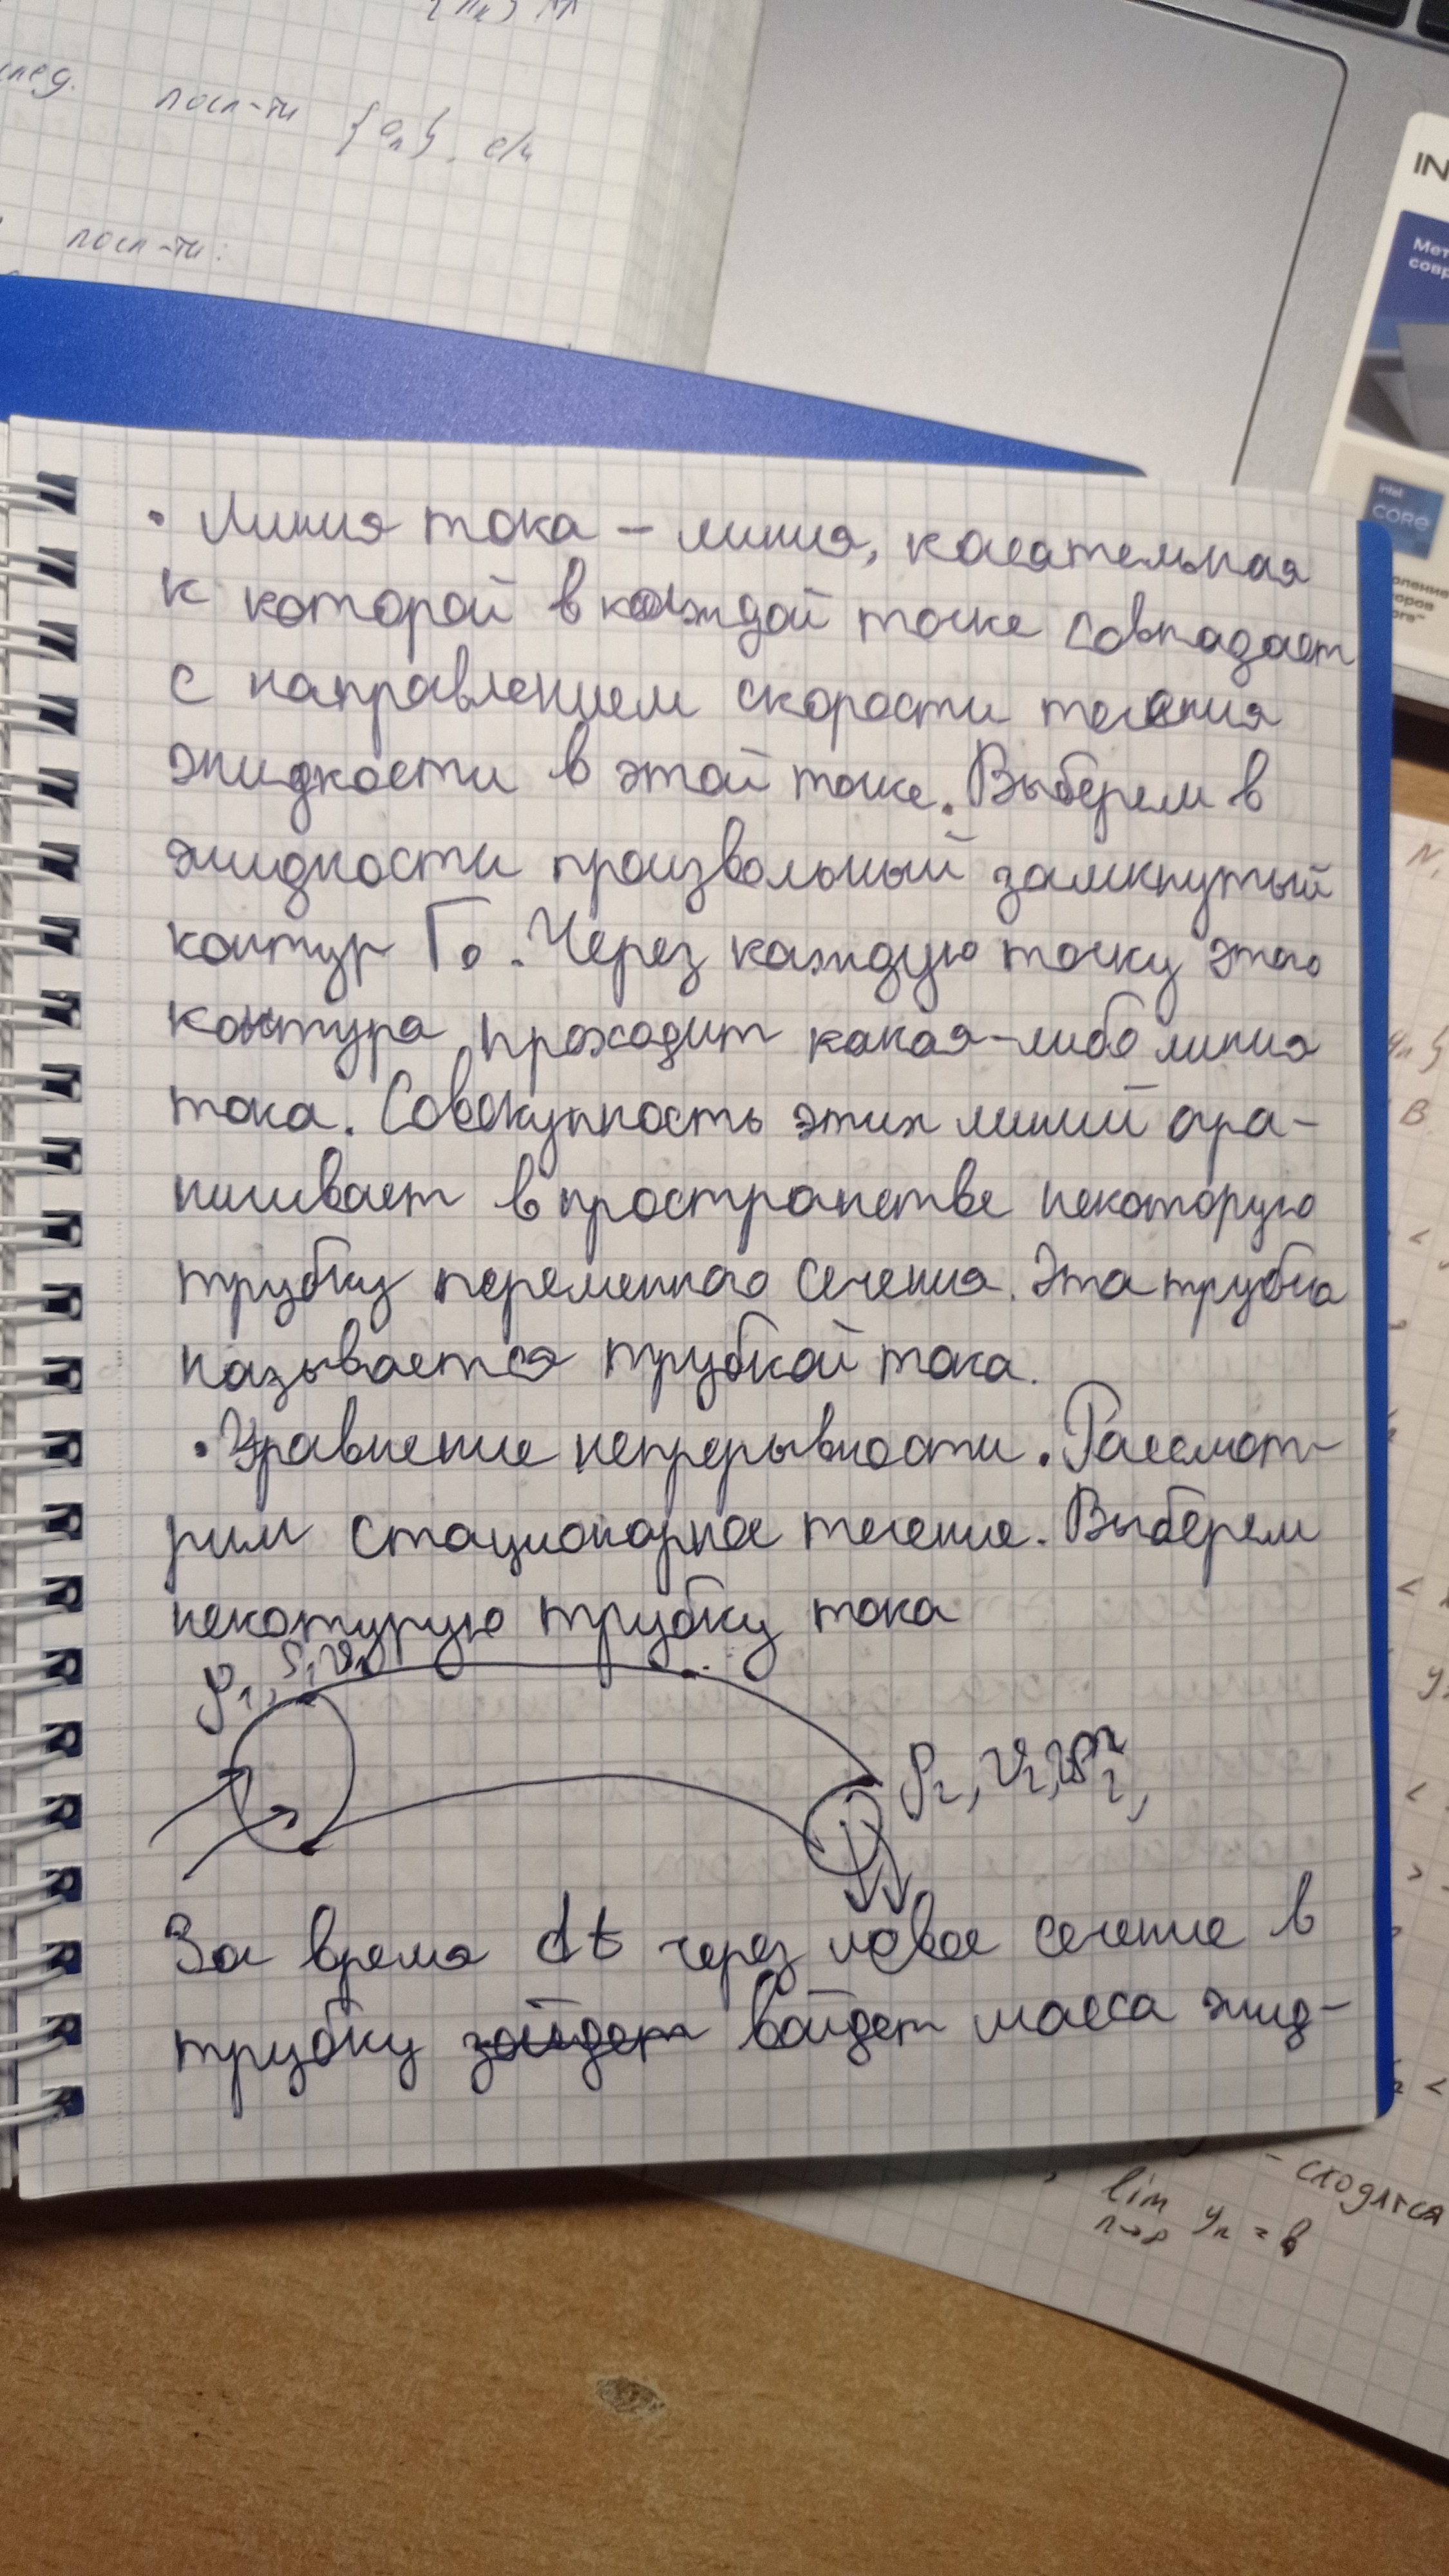 посл-ти {an}, е/и
посл-ти:
IN
intel
CORE
• Линия тока – линия, касательная
к которой в каждой точке совпадает
с направлением скорости течения
жидкости в этой точке. Выберем в
жидкости произвольный замкнутый
контур Г₀. Через каждую точку этого
контура проходит какая-либо линия
тока. Совокупность этих линий огра-
ничивает в пространстве некоторую
трубку переменного сечения. Эта трубка
называется трубкой тока.
• Уравнение непрерывности. Рассмот-
рим стационарное течение. Выберем
некоторую трубку тока
ρ₁, S₁ v₁
ρ₂, v₂,
За время dt через левое сечение в
трубку зайдет войдет масса жид-
- сходятся
lim yn = b
n→∞